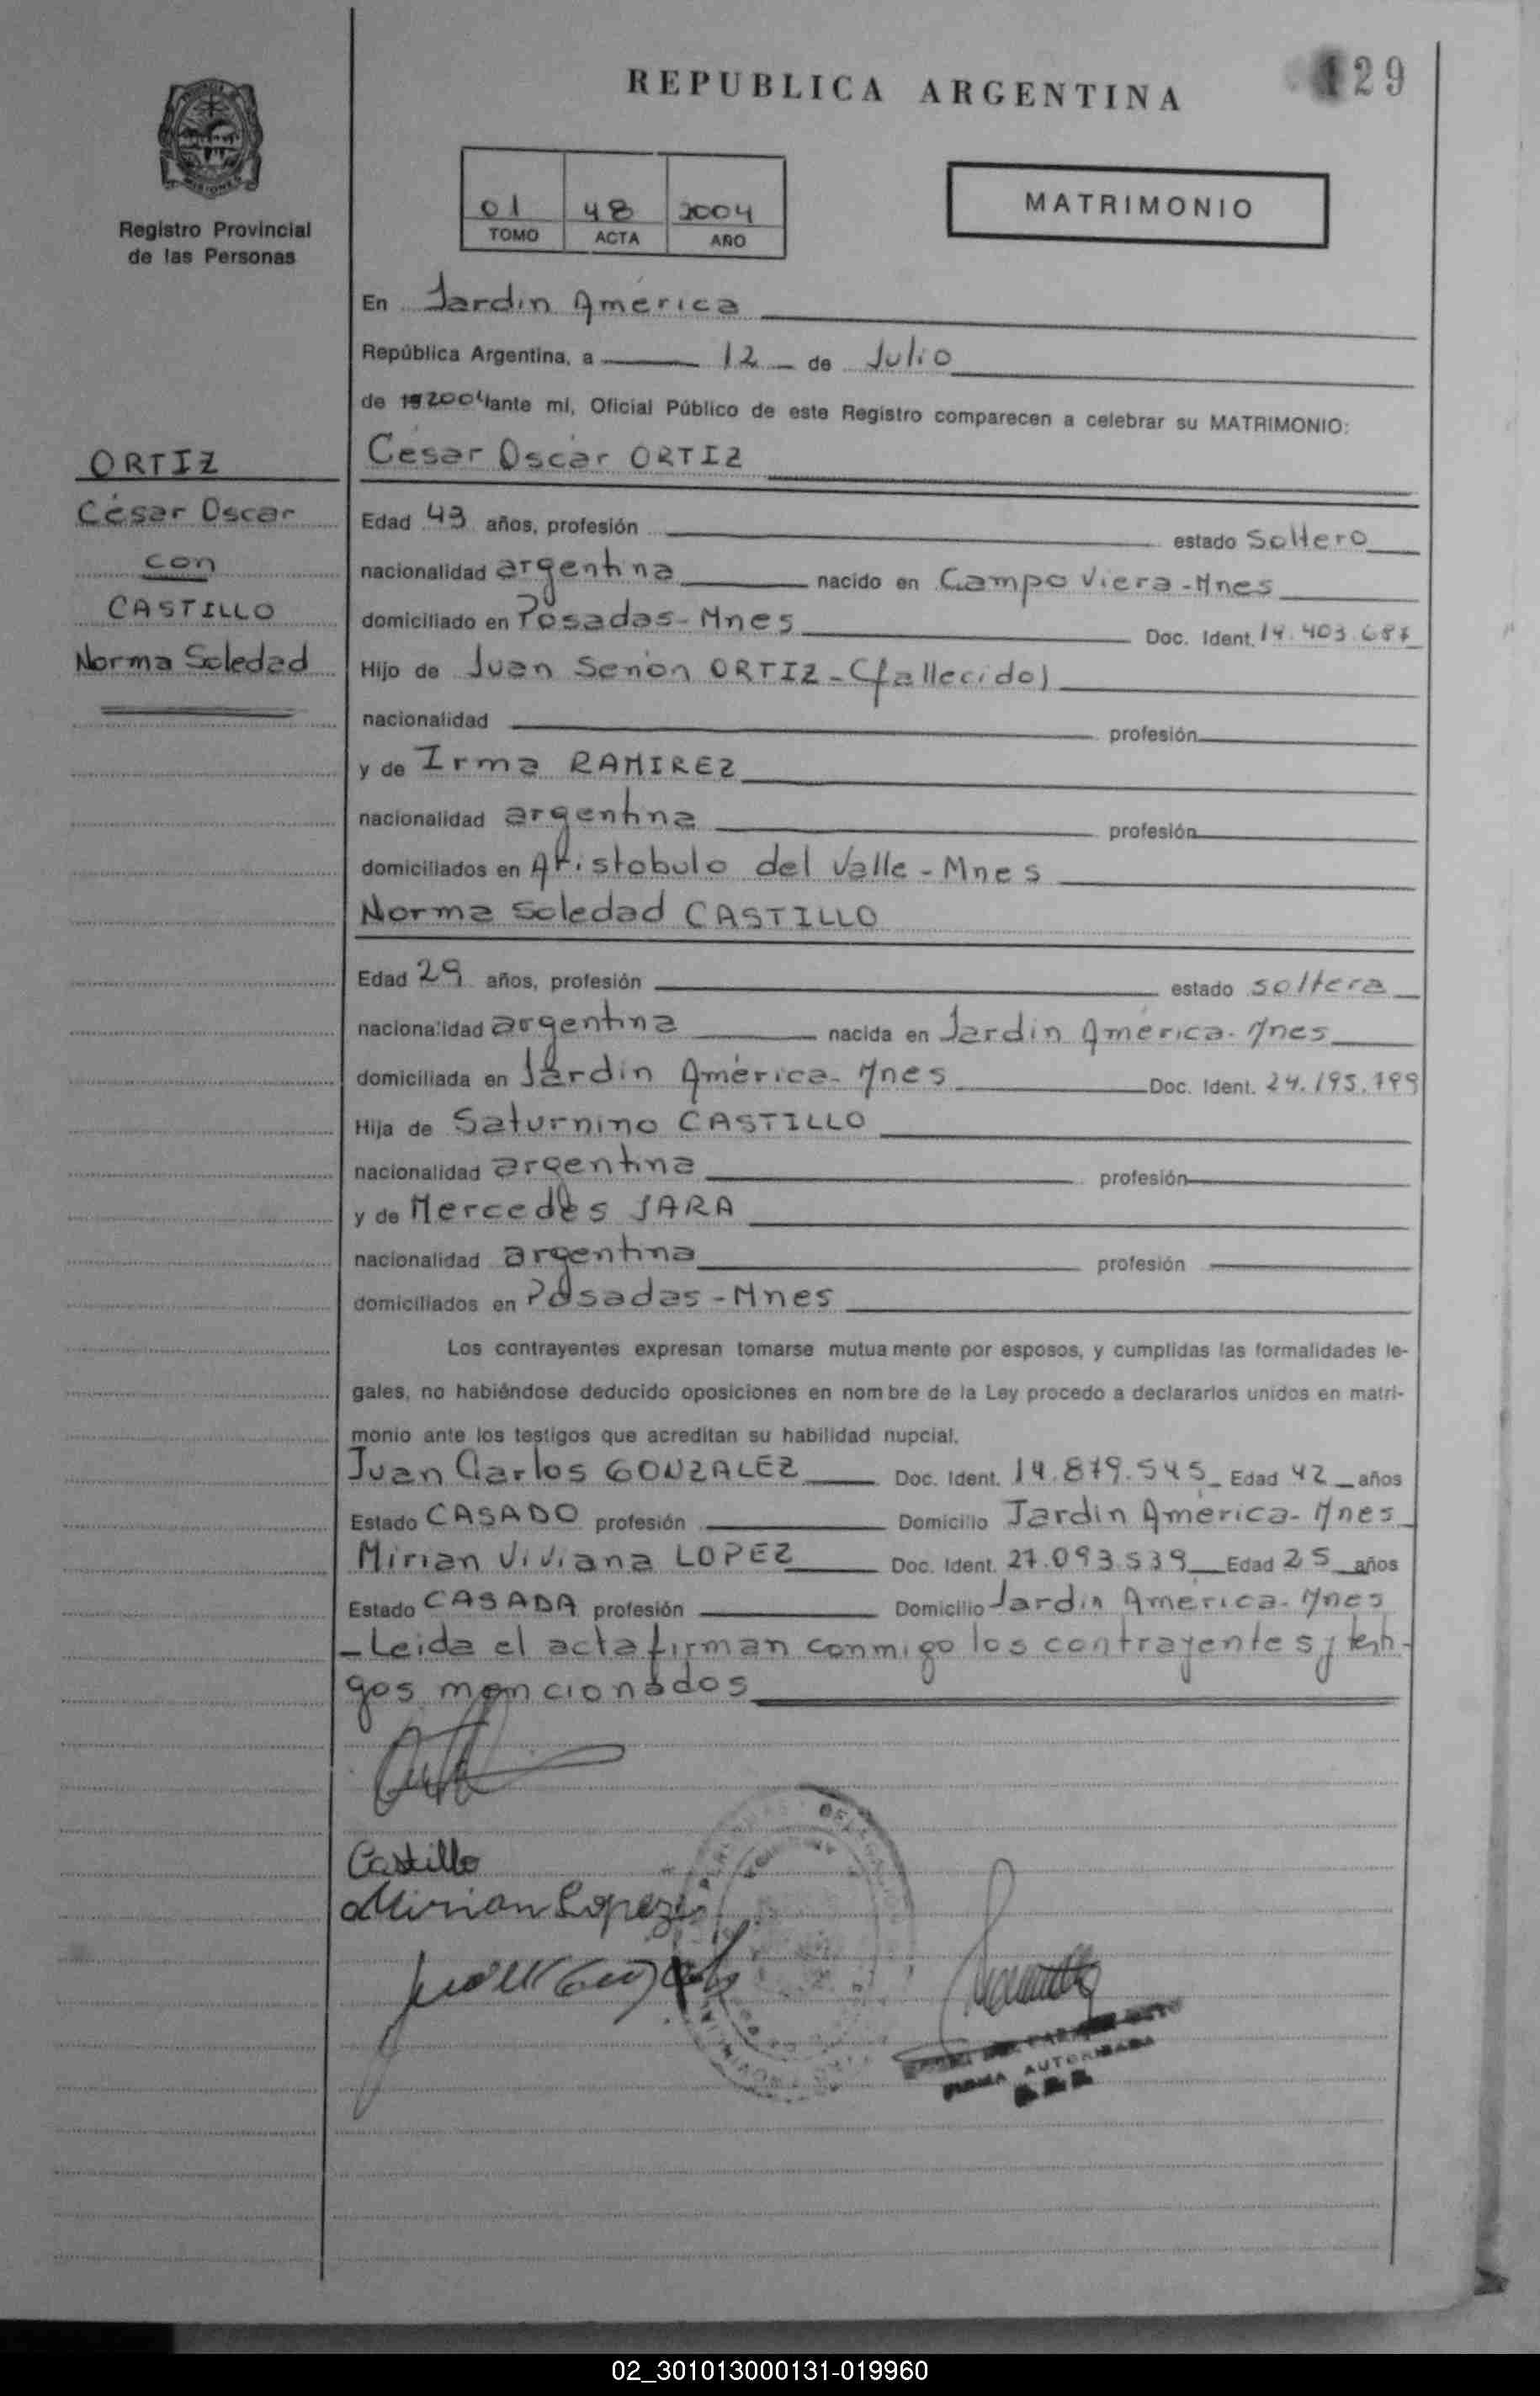 REPUBLICA ARGENTINA
129
MISIONES
Registro Provincial
de las Personas
01 48 2004
TOMO ACTA AÑO
MATRIMONIO
En Jardín América
República Argentina, a 12 de Julio
de 19 2004 ante mí, Oficial Público de este Registro comparecen a celebrar su MATRIMONIO:
ORTIZ
César Oscar
con
CASTILLO
Norma Soledad
César Oscar ORTIZ
Edad 43 años, profesión estado Soltero
nacionalidad argentina nacido en Campo Viera-Mnes
domiciliado en Posadas-Mnes Doc. Ident. 14.403.687
Hijo de Juan Senón ORTIZ-(fallecido)
nacionalidad profesión
y de Irma RAMIREZ
nacionalidad argentina profesión
domiciliados en Aristobulo del Valle-Mnes
Norma Soledad CASTILLO
Edad 29 años, profesión estado soltera
nacionalidad argentina nacida en Jardín América-Mnes
domiciliada en Jardín América-Mnes Doc. Ident. 24.195.799
Hija de Saturnino CASTILLO
nacionalidad argentina profesión
y de Mercedes JARA
nacionalidad argentina profesión
domiciliados en Posadas-Mnes
Los contrayentes expresan tomarse mutuamente por esposos, y cumplidas las formalidades le-
gales, no habiéndose deducido oposiciones en nombre de la Ley procedo a declararlos unidos en matri-
monio ante los testigos que acreditan su habilidad nupcial.
Juan Carlos GONZALEZ Doc. Ident. 14.879.545 Edad 42 años
Estado CASADO profesión Domicilio Jardín América-Mnes
Mirian Viviana LOPEZ Doc. Ident. 27.093.539 Edad 25 años
Estado CASADA profesión Domicilio Jardín América-Mnes
-Leída el acta firman conmigo los contrayentes y testi-
gos mencionados
Castillo
Mirian Lopez
FIRMA AUTORIZADA
02_301013000131-019960